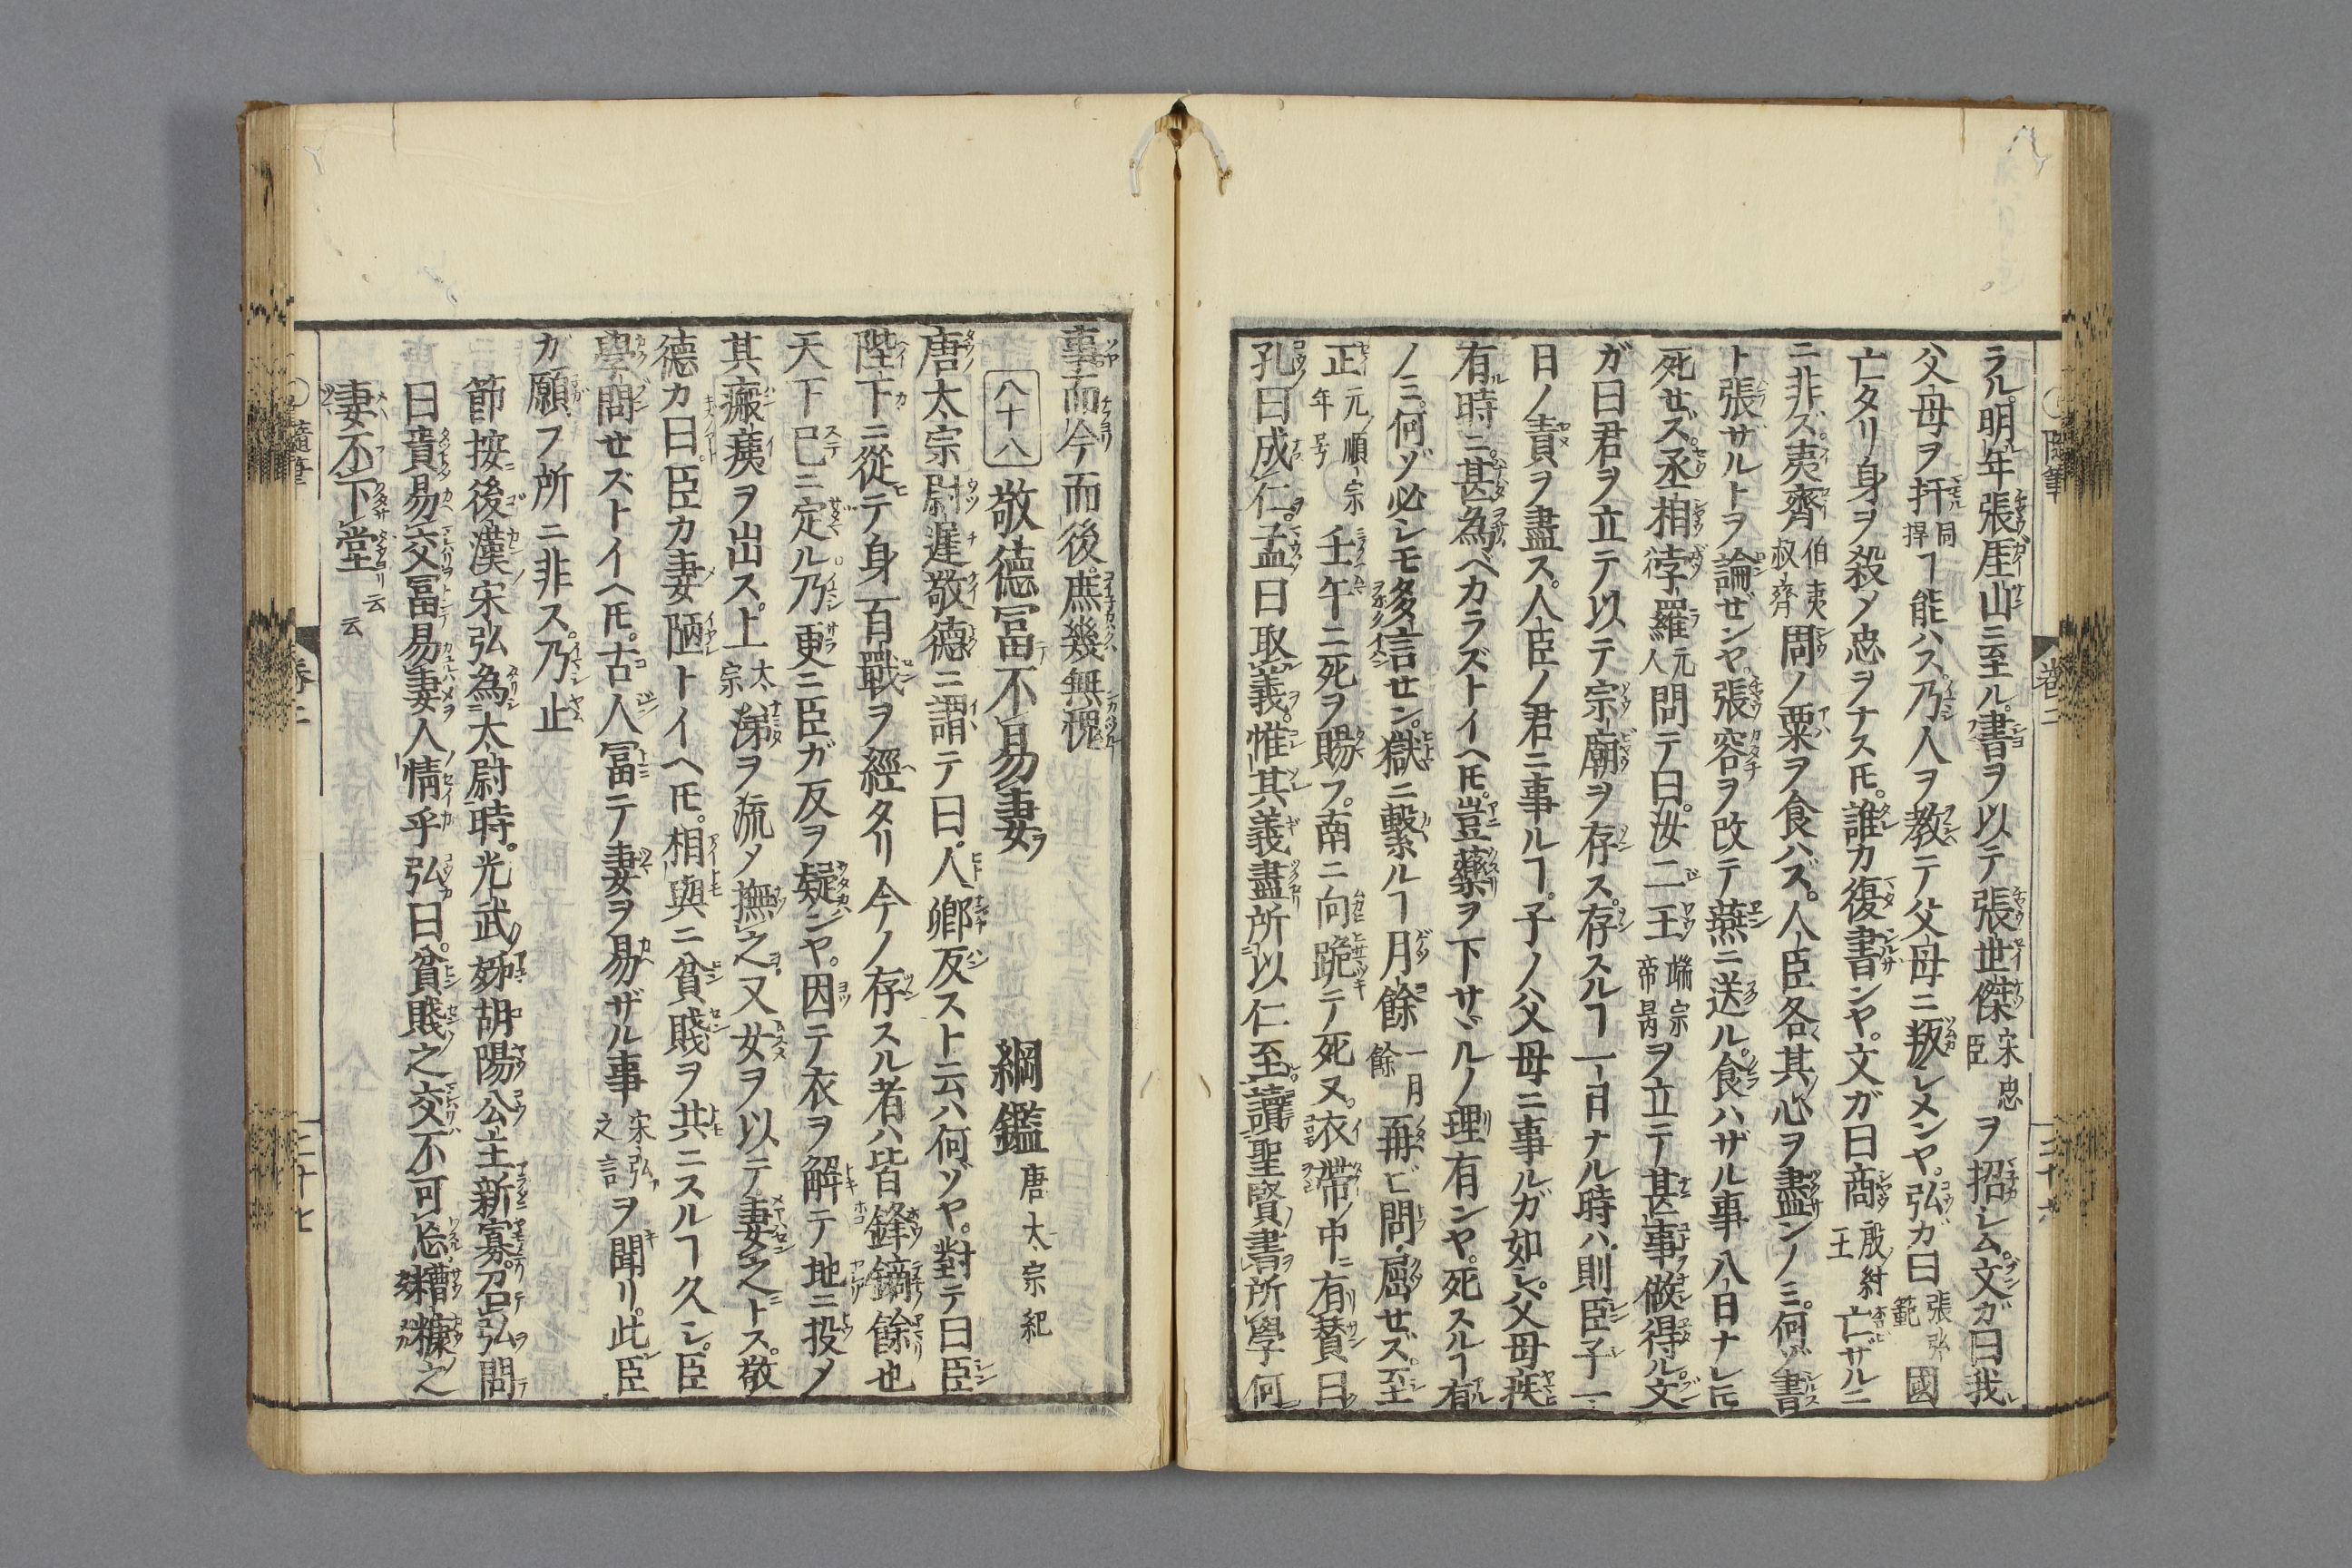 ラル。明年張厓山ニ至ル。書ヲ以テ張世傑宋忠臣ヲ招シム。文ガ曰我
父母ヲ扞同捍ヿ能ハス。乃人ヲ教テ父母ニ叛シメンヤ。弘ガ曰張弘範國
亡タリ身ヲ殺メ忠ヲナス𪜈。誰カ復書ンヤ。文ガ曰商殷紂王亡ザルニ
ニ非ズ夷齊伯夷叔齊周ノ粟ヲ食ハズ。人臣各其心ヲ盡ンノミ。何ゾ書
ト張ザルトヲ論ゼンヤ。張容ヲ改テ燕ニ送ル。食ハザル事八日ナレ𪜈
死セズ。丞相孛羅元人問テ曰。汝二王端宗帝昺ヲ立テ甚事做得ル文
ガ曰君ヲ立テ以テ宗廟ヲ存ス。存スルヿ一日ナル時ハ。則臣子一
日ノ責ヲ盡ス。人臣ノ君ニ事ルヿ。子ノ父母ニ事ルガ如シ。父母疾
有時ニ甚為ベカラズトイヘ𪜈。豈藥ヲ下サヾルノ理有ンヤ。死スルヿ有
ノミ。何ゾ必シモ多言セン。獄ニ繋ルヿ月餘一月餘再ビ問。屈セズ。至
正元年元順宗年号壬午ニ死ヲ賜フ。南ニ向跪テ死ス。衣帶ノ中ニ有賛曰
孔曰成仁。孟曰取義。惟其義盡所以仁至。讀聖賢書所學何
事而今而後庶幾無愧
八十八 敬德冨不易妻 綱鑑唐太宗紀
唐太宗尉遲敬德ニ謂テ曰。人卿反スト云ハ何ゾヤ。對テ曰臣
陛下ニ從テ身百戰ヲ經タリ今ノ存スル者ハ皆鋒鏑餘也
天下已ニ定ル乃更ニ臣ガ反ヲ疑ンヤ。因テ衣ヲ解テ地ニ投メ
其瘢痍ヲ出ス。上太宗涕ヲ流メ撫之又女ヲ以テ妻之トス。敬
德カ曰。臣カ妻陋トイヘ𪜈。相與ニ貧賤ヲ共ニスルヿ久シ。臣
學問セズトイヘ𪜈。古人冨テ妻ヲ易ザル事宋弘之詞ヲ聞リ。此臣
ガ願フ所ニ非ス。乃止
節按後漢宋弘為太尉時。光武姊胡陽公主新寡。召弘問
曰貴易交冨易妻人情乎弘曰。貧賤之交不可忘糟糠之
妻不下堂云云